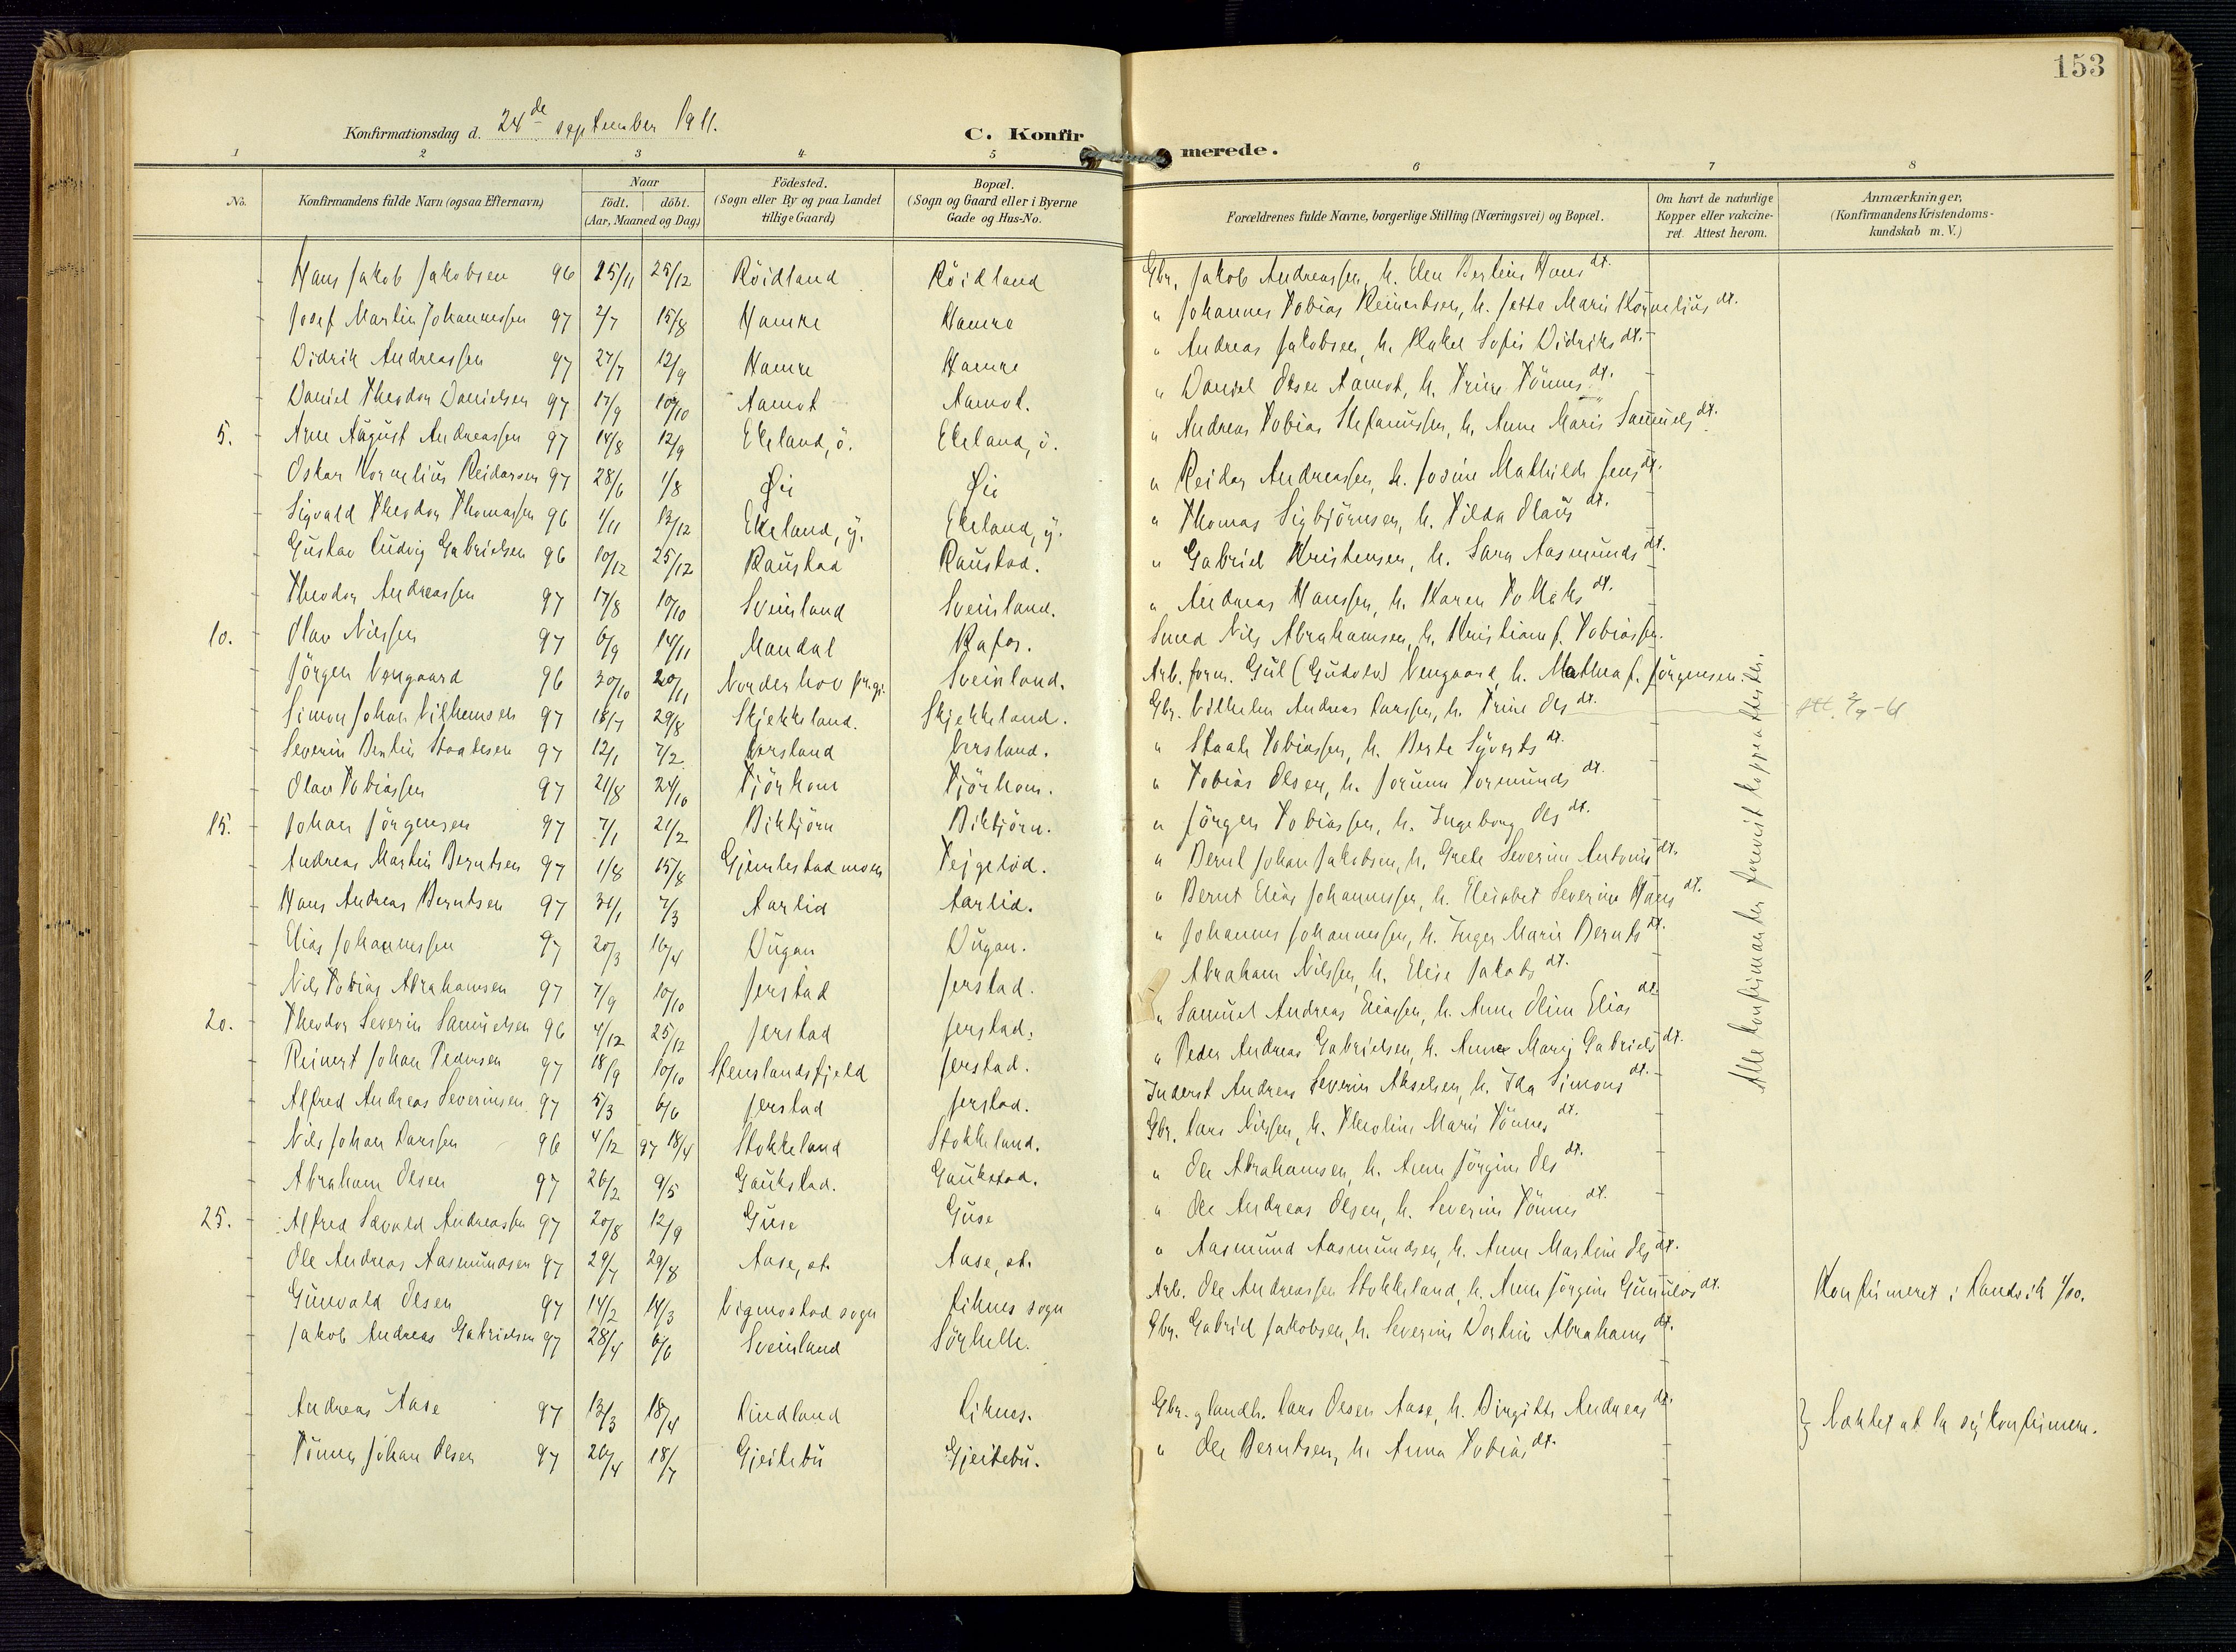 153
Konfirmationsdag d. 24de september 1911.
C. Konfirmerede.
1 2 3 4 5 6 7 8
No.
Konfirmandens fulde Navn (ogsaa Efternavn)
Naar
födt, döbt.
(Aar, Maaned og Dag)
Födested.
(Sogn eller By og paa Landet
tillige Gaard)
Bopæl.
(Sogn og Gaard eller i Byerne
Gade og Hus-No.
Forældrenes fulde Navne, borgerlige Stilling (Næringsvei) og Bopæl.
Om havt de naturlige
Kopper eller vakcine-
ret. Attest herom.
Anmærkninger,
(Konfirmandens Kristendoms-
kundskab m. V.)
Hans Jakob Jakobsen 96 25/11 25/12 Röidland Röidland Gbr. Jakob Andreassen, h. Elen Bertine Hans dt.
Josef Martin Johannessen 97 2/7 15/8 Hamre Hamre " Johannes Tobias Reinertsen, h. Jette Marie Kornelius dt.
Didrik Andreassen 97 27/7 12/9 Hamre Hamre " Andreas Jakobsen, h. Rakel Sofie Didriks dt.
Daniel Theodor Danielsen 97 17/9 10/10 Aamot Aamot. " Daniel Olsen Aamot, h. Trine Tönnes dt.
5. Arne August Andreassen 97 14/8 12/9 Ekeland, ö. Ekeland, ö. " Andreas Tobias Stefanussen, h. Anne Marie Samuels dt.
Oskar Kornelius Reidarsen 97 28/6 1/8 Øie Øie " Reidar Andreassen, h. Josine Mathilde Jens dt.
Sigvald Theodor Thomassen 96 1/11 13/12 Ekeland, y. Ekeland, y. " Thomas Sigbjörnsen, h. Tilda Olaus dt.
Gustav Ludvig Gabrielsen 96 10/12 25/12 Raustad Raustad. " Gabriel Kristensen, h. Sara Aasmunds dt.
Theodor Andreassen 97 17/8 10/10 Sveinland Sveinland. " Andreas Hanssen, h. Karen Tollaks dt.
10. Olav Nilssen 97 6/9 14/11 Mandal Rafos. Smed Nils Abrahamsen, h. Kristiane f. Tobiassen.
Jörgen Vengaard 96 30/10 20/11 Norderhov pr.gj. Sveinland. Arb. form. Gul (Gudolv) Vengaard, h. Mathea f. Jörgensen.
Simon Johan Vilhemsen 97 18/7 29/8 Skjekkeland. Skjekkeland. Gbr. Vilhelm Andreas Larssen, h. Trine Ols dt. Att. 2/9-61
Severin Bertin Staalesen 97 12/1 7/2 Versland Versland. " Staale Tobiassen, h. Berte Syverts dt.
Olav Tobiassen 97 21/8 24/10 Tjörhom Tjörhom. " Tobias Olsen, h. Jorunn Tormunds dt.
15. Johan Jörgensen 97 7/1 21/2 Birkjörn Birkjörn. " Jörgen Tobiassen, h. Ingeborg Ols dt.
Andreas Martin Berntsen 97 1/8 15/8 Gjemlestad moen Teigelid. " Bernt Johan Jakobsen, h. Grete Severine Antonis dt.
Hans Andreas Berntsen 97 31/1 7/3 Aarlid Aarlid. " Bernt Elias Johannessen, h. Elisabet Severine Hans dt.
Elias Johannessen 97 20/3 16/4 Dugan Dugan. " Johannes Johannessen, h. Inger Marie Bernts dt.
Nils Tobias Abrahamsen 97 7/9 10/10 Jerstad Jerstad. Abraham Nilssen, h. Elise Jakobs dt.
20. Theodor Severin Samuelsen 96 4/12 25/12 Jerstad Jerstad. " Samuel Andreas Eliassen, h. Anne Oline Elias dt.
Reinert Johan Pedersen 97 18/9 10/10 Stenslandsfjeld Jerstad. " Peder Andreas Gabrielsen, h. Anne Marie Gabriels dt.
Alfred Andreas Severinsen 97 5/3 6/6 Jerstad Jerstad. Inderst Andreas Severin Akselsen, h. Ida Simons dt.
Nils Johan Larssen 96 4/12 97 18/4 Stokkeland Stokkeland. Gbr. Lars Nilssen, h. Theoline Marie Tönnes dt.
Abraham Olsen 97 26/2 9/5 Gaukstad. Gaukstad. " Ole Abrahamsen, h. Anne Jörgine Ols dt.
25. Alfred Sævald Andreassen 97 20/8 12/9 Guse Guse " Ole Andreas Olsen, h. Severine Tönnes dt.
Ole Andreas Aasmundsen 97 29/7 29/8 Aase, st. Aase, st. " Aasmund Aasmundsen, h. Anne Martine Ols dt.
Gunvald Olsen 97 14/2 14/3 Vigmostad sogn Liknes sogn Arb. Ole Andreassen Stokkeland, h. Anne Jörgine Gunulvs dt. Konfirmeret i Landvik 1/10.
Jakob Andreas Gabrielsen 97 28/4 6/6 Sveinland Sörhelle. Gbr. Gabriel Jakobsen, h. Severine Dortine Abrahams dt.
Andreas Aase 97 13/3 18/4 Rindland Liknes. Gbr. & landh. Lars Olsen Aase, h. Birgitte Andreas dt. } Nektet at la sig konfirmere.
Tönnes Johan Olsen 97 20/4 18/7 Gjeitebu Gjeitebu. " Ole Berntsen, h. Anna Tobias dt.
Alle konfirmander forevist koppeattester.